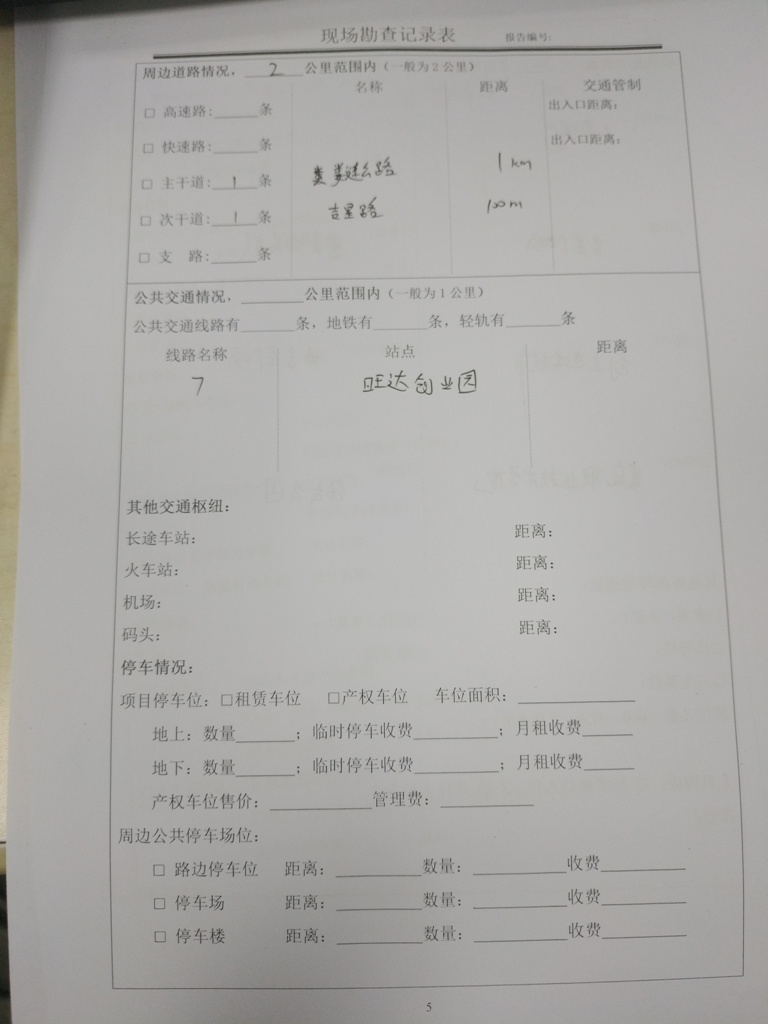 现场勘查记录表 报告编号:
周边道路情况，2 公里范围内（一般为2公里）
名称 距离 交通管制
□ 高速路:______条 出入口距离：
□ 快速路:______条 出入口距离：
□ 主干道: 1 条 公路 1km
□ 次干道: 1 条 吉星路 100m
□ 支 路:______条
公共交通情况，________公里范围内（一般为1公里）
公共交通线路有_______条，地铁有_______条，轻轨有_______条
线路名称 站点 距离
7 旺达创业园
其他交通枢纽：
长途车站： 距离：
火车站： 距离：
机场： 距离：
码头： 距离：
停车情况：
项目停车位：□租赁车位 □产权车位 车位面积：______________
地上：数量_______；临时停车收费__________；月租收费______
地下：数量_______；临时停车收费__________；月租收费______
产权车位售价：____________管理费：___________
周边公共停车场位：
□ 路边停车位 距离：__________数量：___________收费__________
□ 停车场 距离：__________数量：___________收费__________
□ 停车楼 距离：__________数量：___________收费__________
5